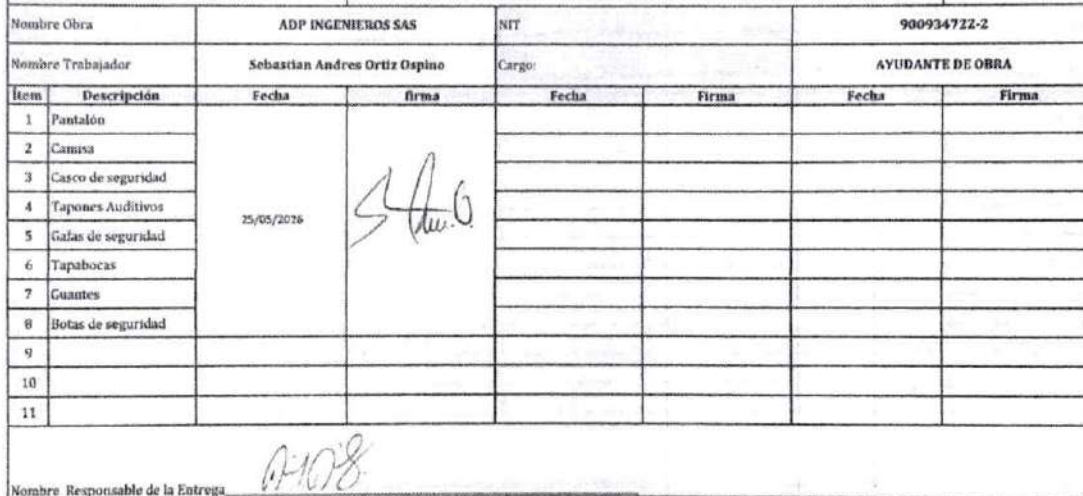 Nombre Obra ADP INGENIEROS SAS NIT 900934722-2
Nombre Trabajador Sebastian Andres Ortiz Ospino Cargo: AYUDANTE DE OBRA
Ítem Descripción Fecha firma Fecha Firma Fecha Firma
1 Pantalón
2 Camisa
3 Casco de seguridad
4 Tapones Auditivos
25/05/2026
5 Gafas de seguridad
6 Tapabocas
7 Guantes
8 Botas de seguridad
9
10
11
Nombre Responsable de la Entrega